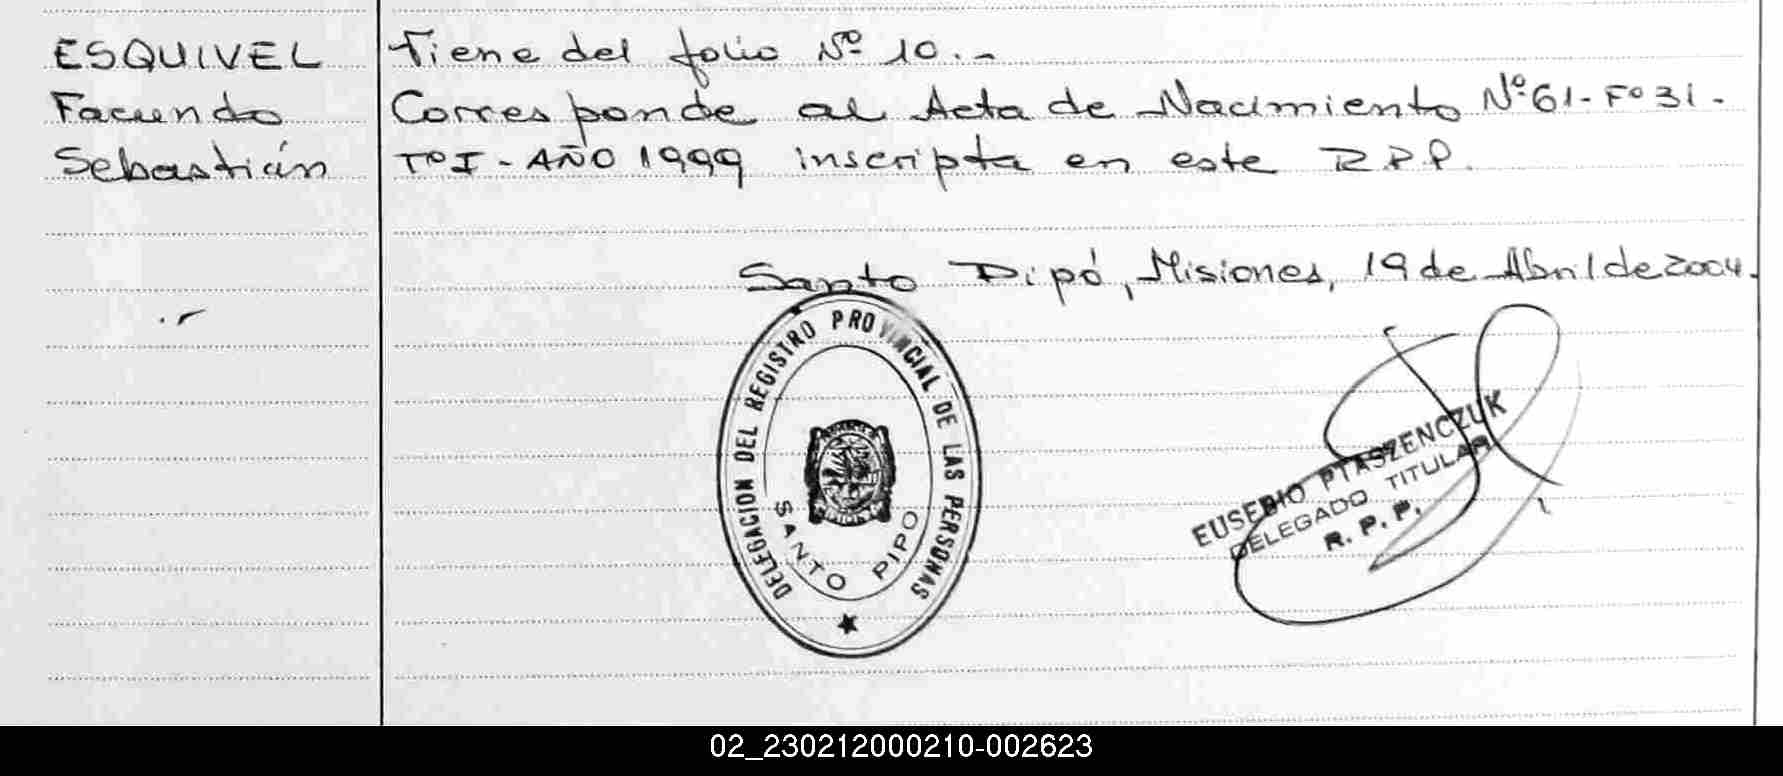 ESQUIVEL
Facundo
Sebastián
Tiene del folio Nº 10.-
Corresponde al Acta de Nacimiento Nº 61 - Fº 31 -
Tº I - AÑO 1999 inscripta en este R.P.P.
Santo Pipó, Misiones, 19 de Abril de 2004.
DELEGACION DEL REGISTRO PROVINCIAL DE LAS PERSONAS
SANTO PIPO
EUSEBIO PTASZENCZUK
DELEGADO TITULAR
R. P. P.
02_230212000210-002623